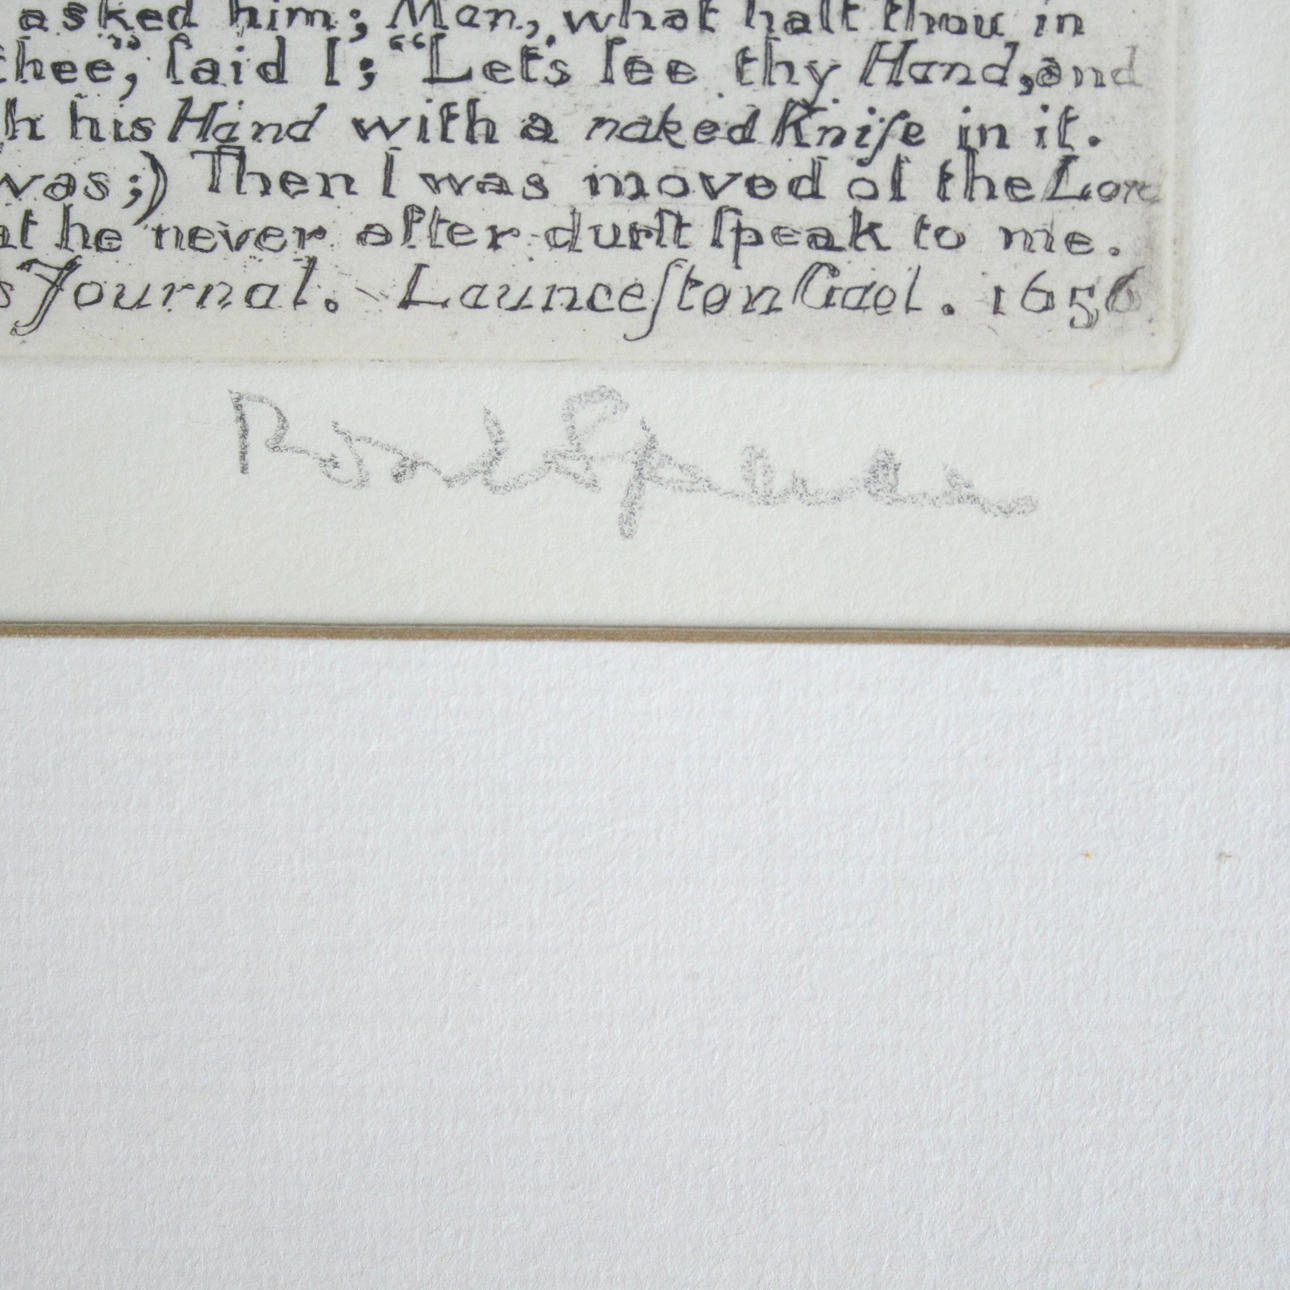 asked him; Man, what haſt thou in
thee," ſaid I; "Let's ſee thy Hand, and
h his Hand with a naked Knife in it.
was;) Then I was moved of the Lord
at he never after durſt ſpeak to me.
s Journal. Launceſton Gaol. 1656